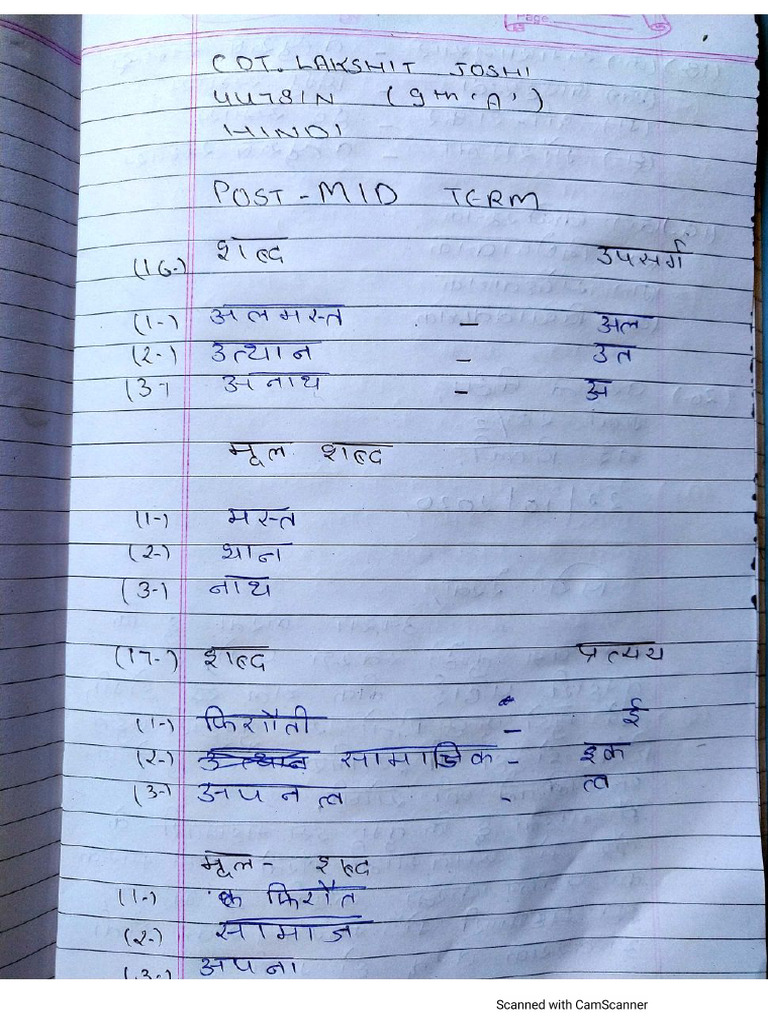 Page
CDT. LAKSHIT JOSHI
44781N (9TH 'A')
HINDI
POST-MID TERM
(16-) शब्द उपसर्ग
(1-) अलमस्त - अल
(2-) उत्थान - उत
(3-) अनाथ - अ
मूल शब्द
(1-) मस्त
(2-) थान
(3-) नाथ
(17-) शब्द प्रत्यय
(1-) फिरौती - ई
(2-) उत्थान सामाजिक - इक
(3-) अपनत्व - त्व
मूल - शब्द
(1-) फिरौत
(2-) सामाज
(3-) अपना
Scanned with CamScanner